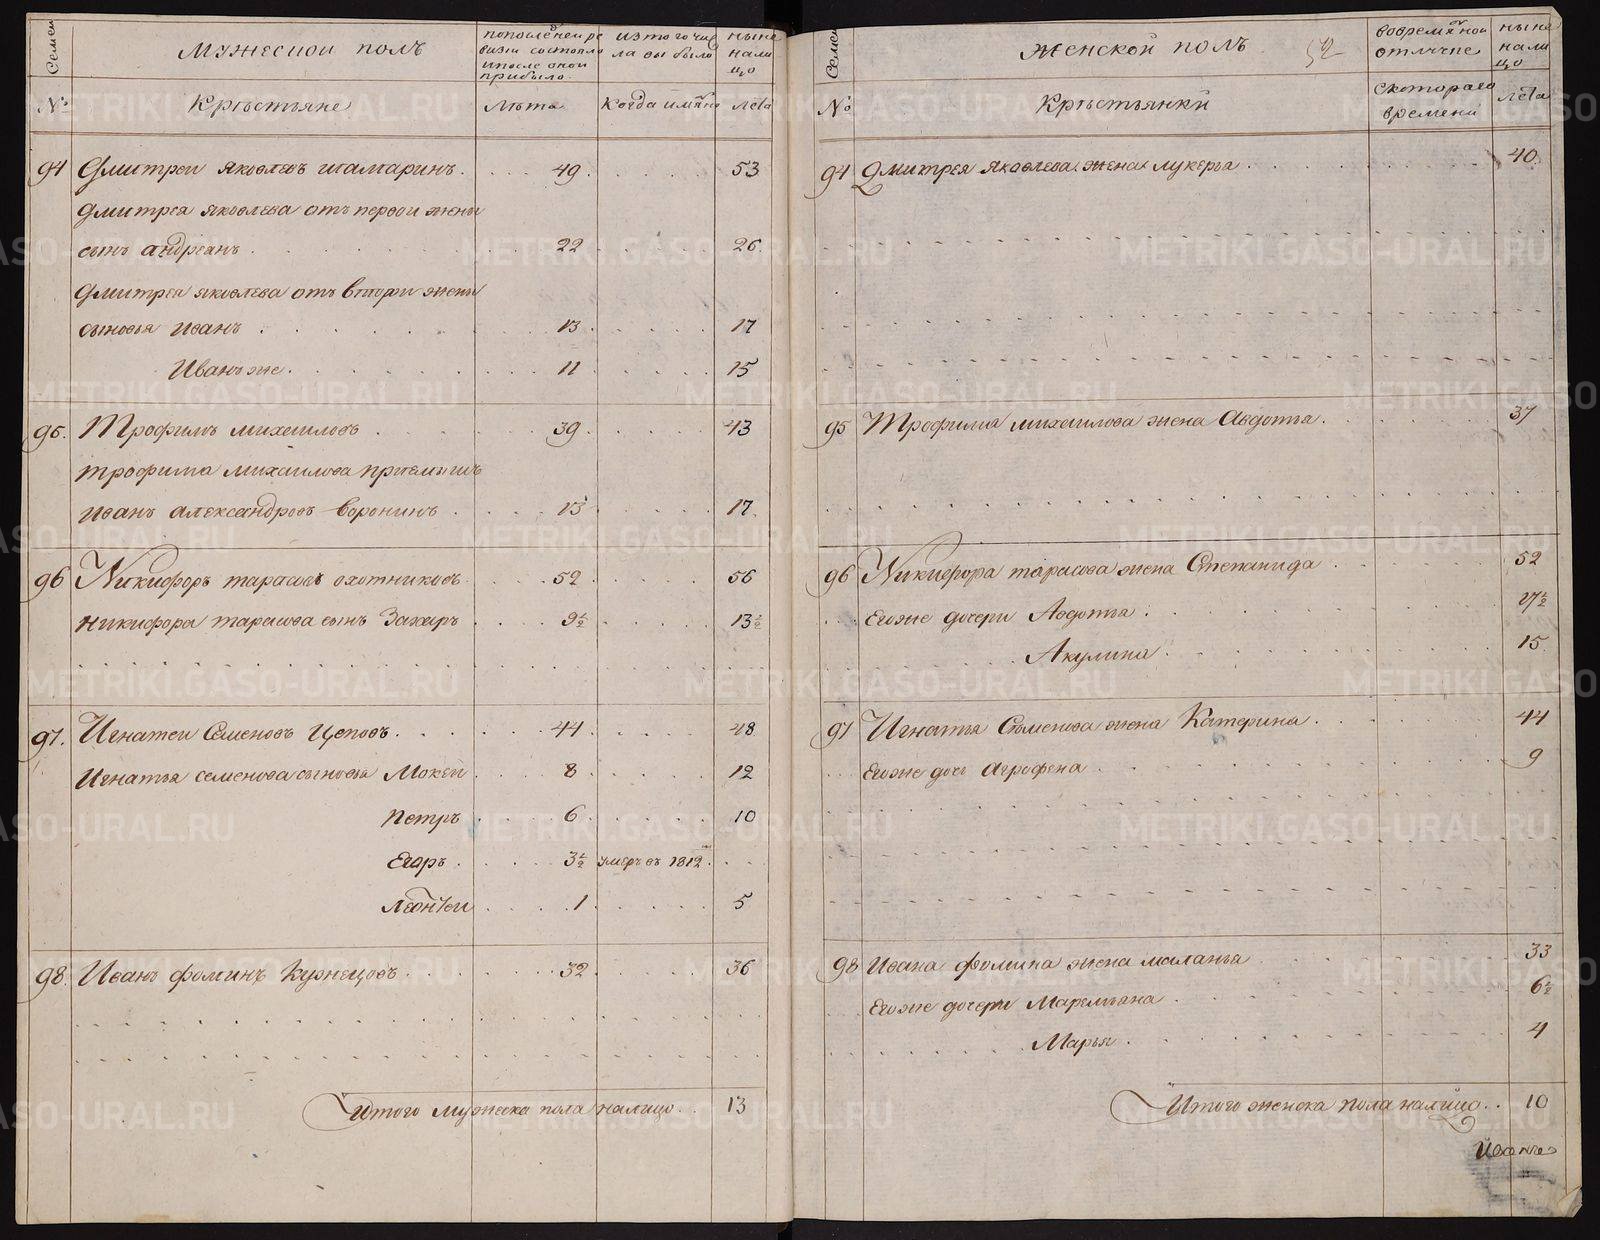 Семеи
Мужескои полъ
попоследнеи ре
визии состояло
ипосле онои
прибыло.
изтого чис
ла выбыло
ныне
нали
цо
№
Крестьяне
Лѣта
Когда имянно
лета
94 Дмитреи яковлевъ шамаринъ. 49. 53
Дмитрея яковлева отъ первои жены
сынъ андреянъ. 22 26
Дмитрея яковлева отъ второи жены
сыновья иванъ. 13. 17
Иванъ же. 11 15
95. Трофимъ михаиловъ 39. 43
трофима михаилова приемышъ
иванъ александровъ воронинъ. 13 17.
96 Никифоръ тарасовъ охотниковъ. 52 56
никифора тарасова сынъ Захаръ 9½ 13½
97. Игнатеи Семеновъ Цеповъ. 44 48
Игнатья семенова сыновья Мокеи 8 12
Петръ 6 10
Егоръ 3½ умеръ въ 1812.
Леонтеи 1 5
98. Иванъ фоминъ Кузнецовъ. 32 36
Итого мужеска пола налицо. 13
Семеи
Женскои полъ
52
вовремяннои
отлучке
ныне
нали
цо
№
Крестьянки
скотораго
времени
лета
94 Дмитрея яковлева жена лукерья. 40.
95 Трофима михаилова жена Авдотья. 37
96 Никифора тарасова жена Степанида 52
Егоже дочери Авдотья. 17½
Акулина. 15
97 Игнатья Семенова жена Катерина. 44
Егоже дочь Агрофена 9
98 Ивана фомина жена маланья 33
Егоже дочери Маремьяна 6½
Марья 4
Итого женска пола налицо. 10
METRIKI.GASO-URAL.RU